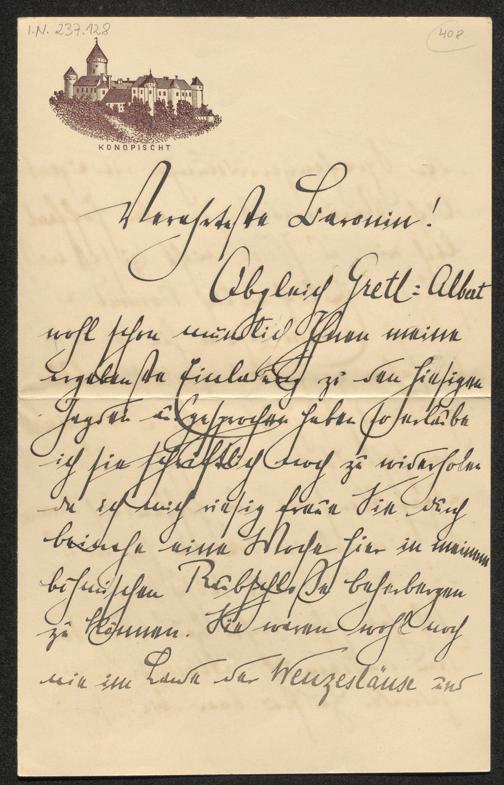 I.N. 237.128
408
KONOPISCHT
Verehrteste Baronin!
Obgleich Gretl-Albert
wohl schon mündlich Ihnen meine
ergebenste Einladung zu den hiesigen
Jagden ausgesprochen haben so erlaube
ich sie schriftlich noch zu widerholen
da ich mich riesig freue Sie durch
beinahe eine Woche hier in meinem
böhmischen beherbergen
zu können. Sie waren wohl noch
nie im Lande der Wenzesläuse und